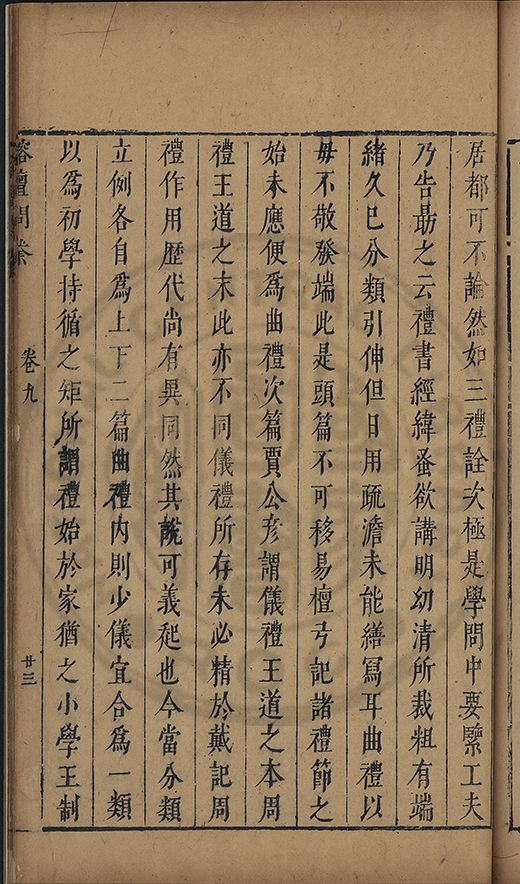 居都可不論然如三禮詮次極是學問中要緊工夫
乃告勗之云禮書經緯蚤欲講明幼清所裁粗有端
緒久已分類引伸但日用疏澹未能繕寫耳曲禮以
毋不敬發端此是頭篇不可移易檀弓記諸禮節之
始未應便爲曲禮次篇賈公彦謂儀禮王道之本周
禮王道之末此亦不同儀禮所存未必精於戴記周
禮作用歷代尚有異同然其說可義起也今當分類
立例各自爲上下二篇曲禮內則少儀宜合爲一類
以爲初學持循之矩所謂禮始於家猶之小學王制
榕壇問業 卷九 廿三